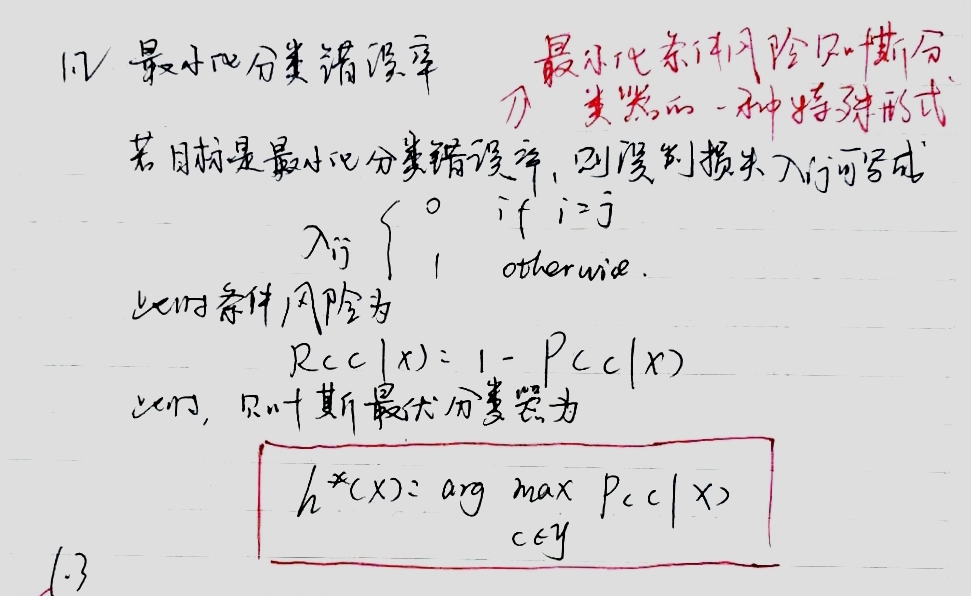 最小化分类错误率
最小化条件风险贝叶斯分
类器的一种特殊形式
若目标是最小化分类错误率,则误判损失λij可写成
λij { 0 if i=j
1 otherwise.
此时条件风险为
R(c|x)=1-P(c|x)
此时,贝叶斯最优分类器为
h*(x)=arg max P(c|x)
c∈y
1.3